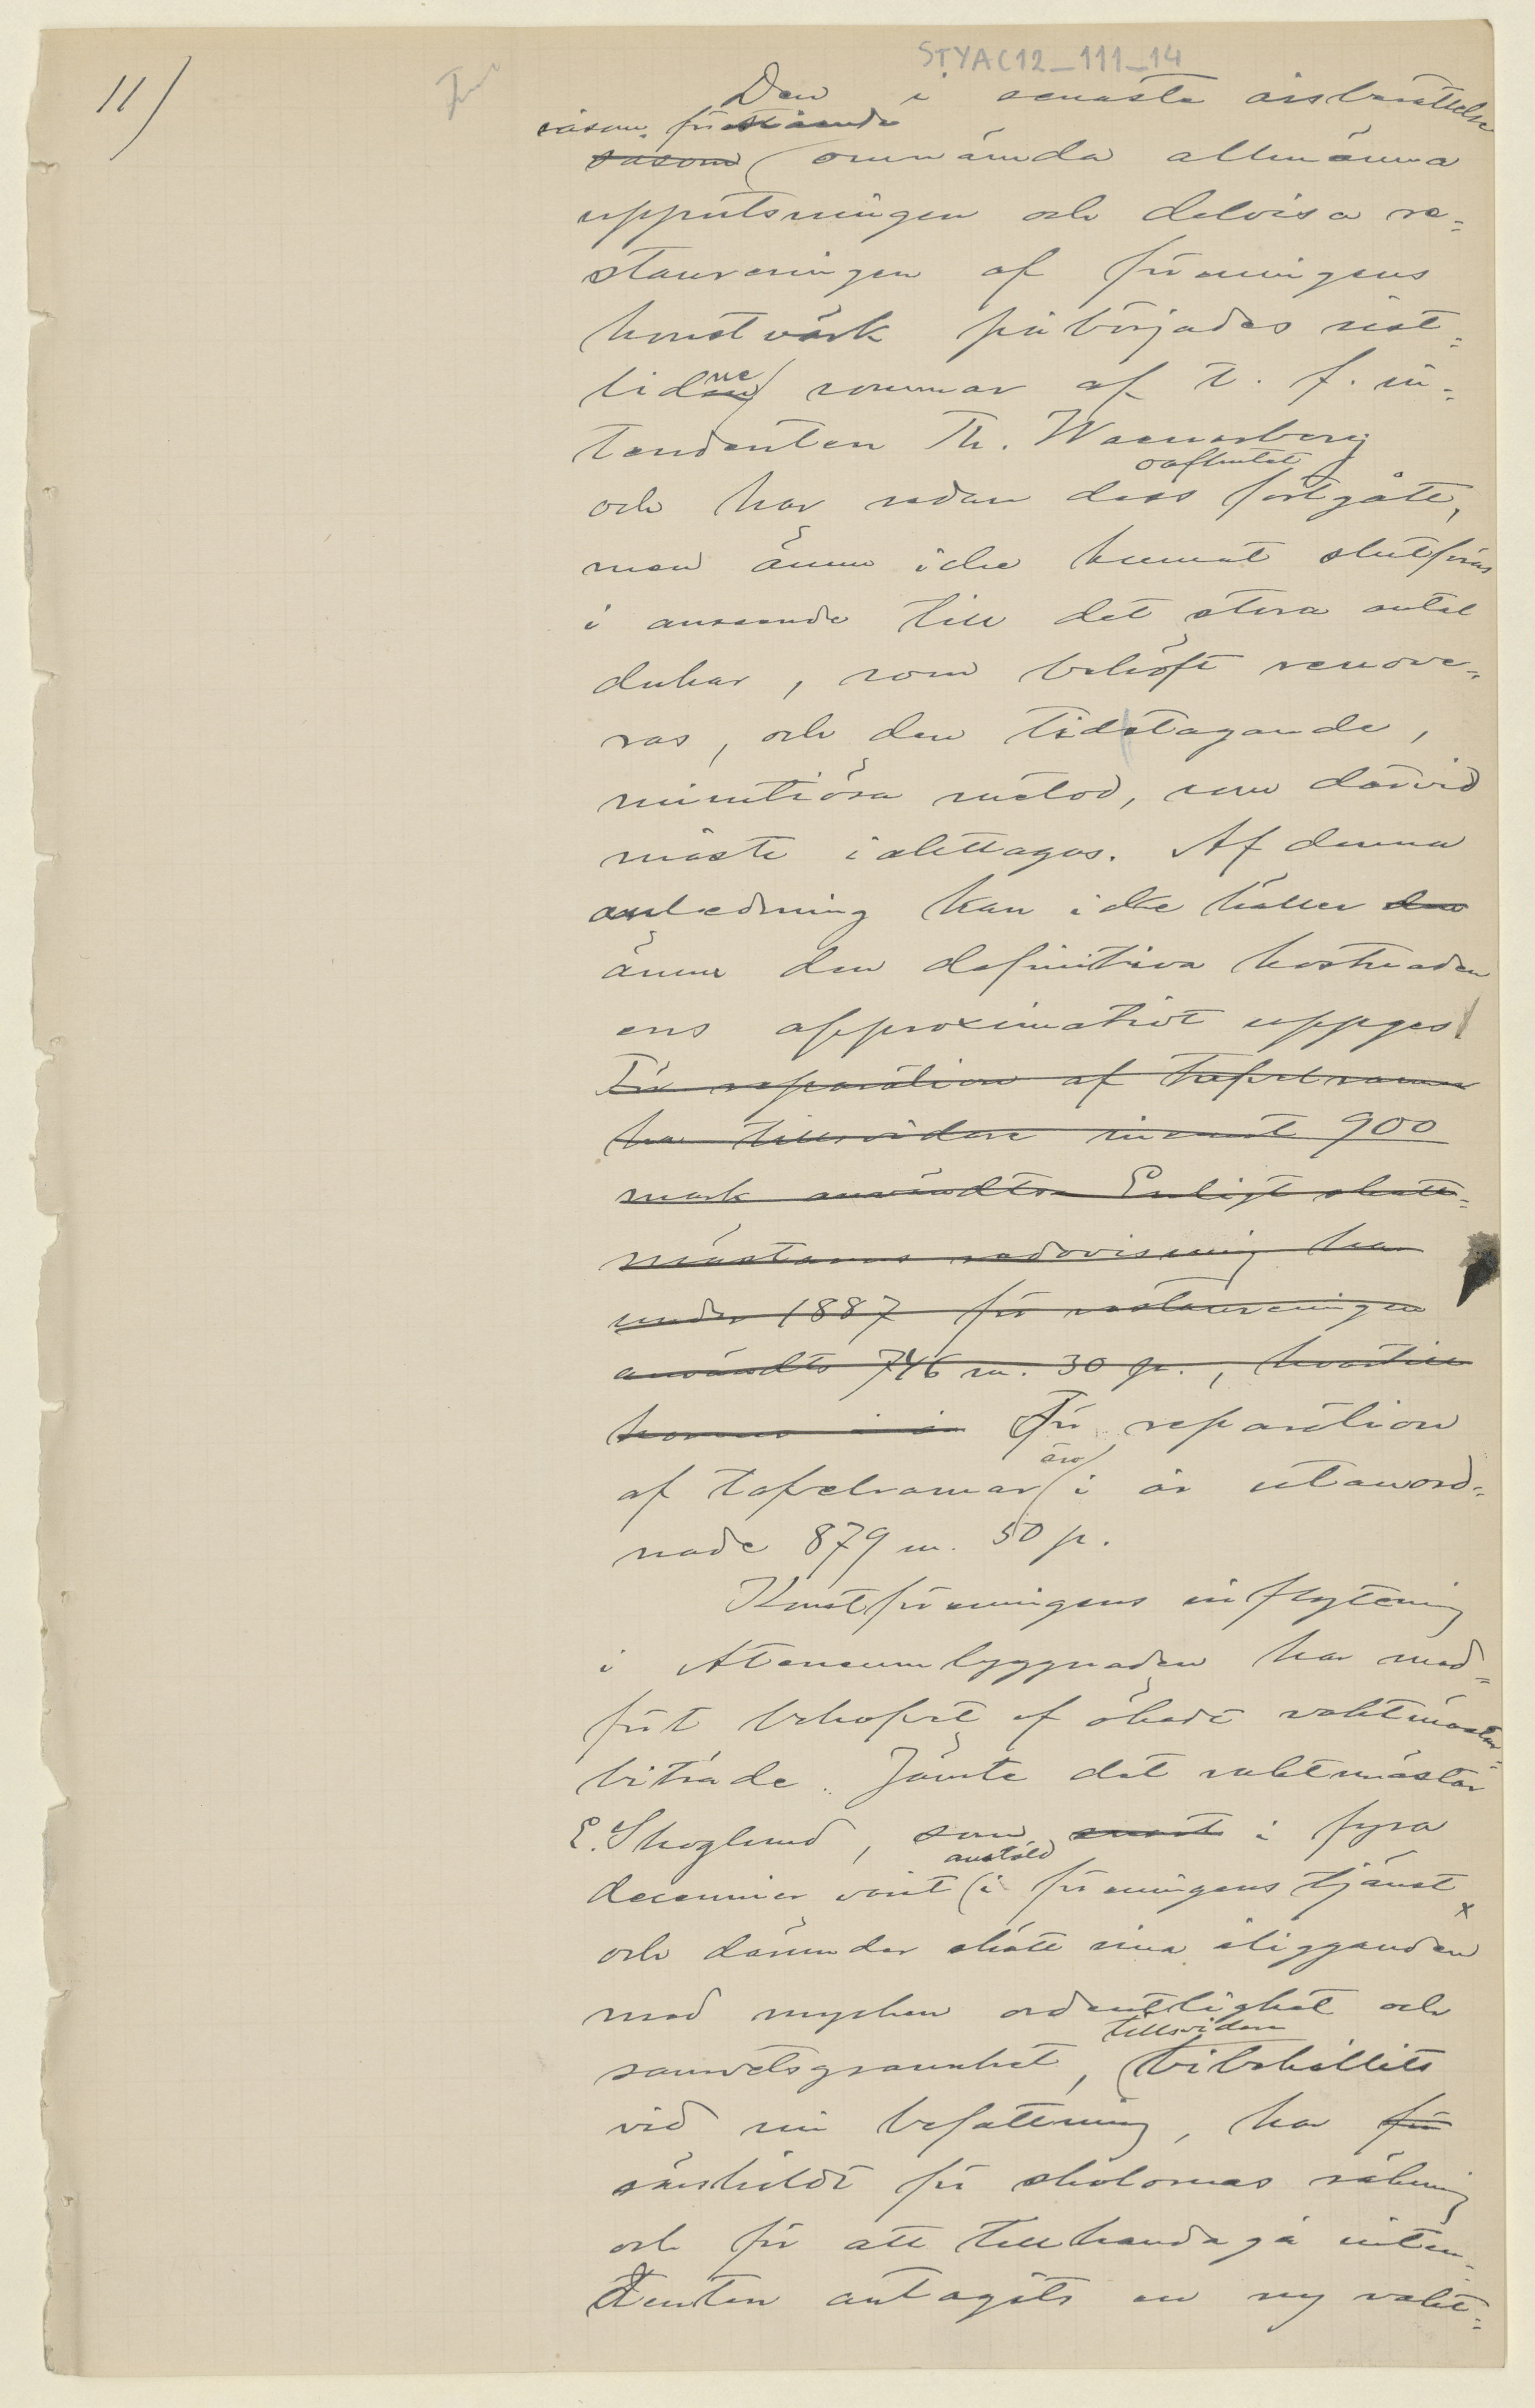 STYAC12_111_14
11)
Den i senaste årsberättelse
såsom förestående
såsom omnämda allmänna
upputsningen och delvisa re-
staureringen af föreningens
konstvärk påbörjades sist-
lidne sommar af t. f. in-
tendenten Th. Waenerberg
oafbrutet
och har sedan dess fortgått,
men ännu icke kunnat slutföras
i anseende till det stora antal
dukar, som behöft renove-
ras, och den tidstagande,
minutiösa metod, som därvid
måste iakttagas. Af denna
anledning kan icke häller den
ännu den definitiva kostnaden
ens approximativt uppges
För reparation af tafvelramar
ha tillsvidare inemot 900
mark användts. Enligt skatt-
mästarens redovisning har
under 1887 för restaureringen
användts 746 m. 30 p., hvartill
kommer För reparation
äro
af tafvelramar i år utanord-
nade 879 m. 50 p.
Konstföreningens inflyttning
i Ateneumbyggnaden har med-
fört behofvet af ökadt vaktmästar-
biträde. Jämte det vaktmästar
E. Skoglund, som snart i fyra
anstäld
decennier varit i föreningens tjänst x
och därunder skött sina åligganden
med mycken ordentlighet och
tillsvidare
samvetsgrannhet, bibehållits
vid sin befattning, har för
särskildt för skolornas räkning
och för att tillhandagå inten-
denten antagits en ny vakt-